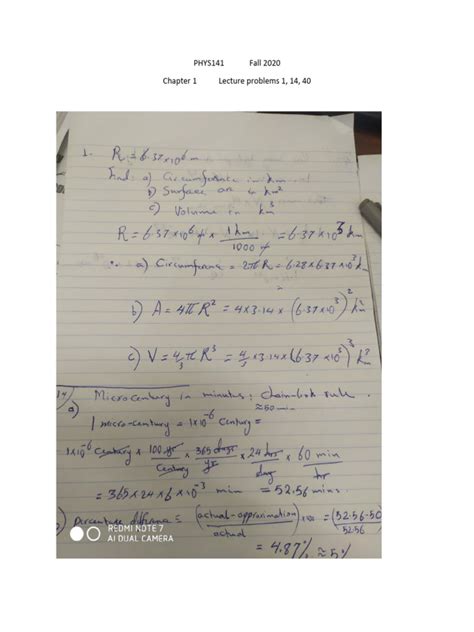 PHYS141 Fall 2020
Chapter 1 Lecture problems 1, 14, 40
1. R = 6.37×10⁶ m
find: a) Circumference in km
b) Surface are km²
c) Volume in km³
R = 6.37 ×10⁶ m × 1km/1000 m = 6.37 ×10³ km
a) Circumference = 2πR = 6.28×6.37×10³ k
b) A = 4πR² = 4×3.14×(6.37×10³)² km²
c) V = 4/3 πR³ = 4/3 ×3.14×(6.37×10³)³ km³
14) Microcentury in minutes: Chain-link rule.
a) ≈50 min
1 micro-century = 1×10⁻⁶ Century =
1×10⁻⁶ Century × 100 yr/Century × 365 days/yr × 24 hr/day × 60 min/hr
= 365×24×6×10⁻³ min = 52.56 mins.
) Percentage difference = (actual-approximation/actual) ×100 = (52.56-50/52.56
= 4.87% ≈ 5%
REDMI NOTE 7
AI DUAL CAMERA